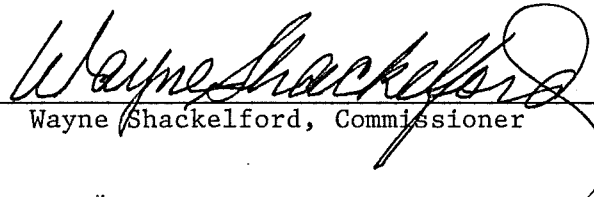 Wayne Shackelford
Wayne Shackelford, Commissioner